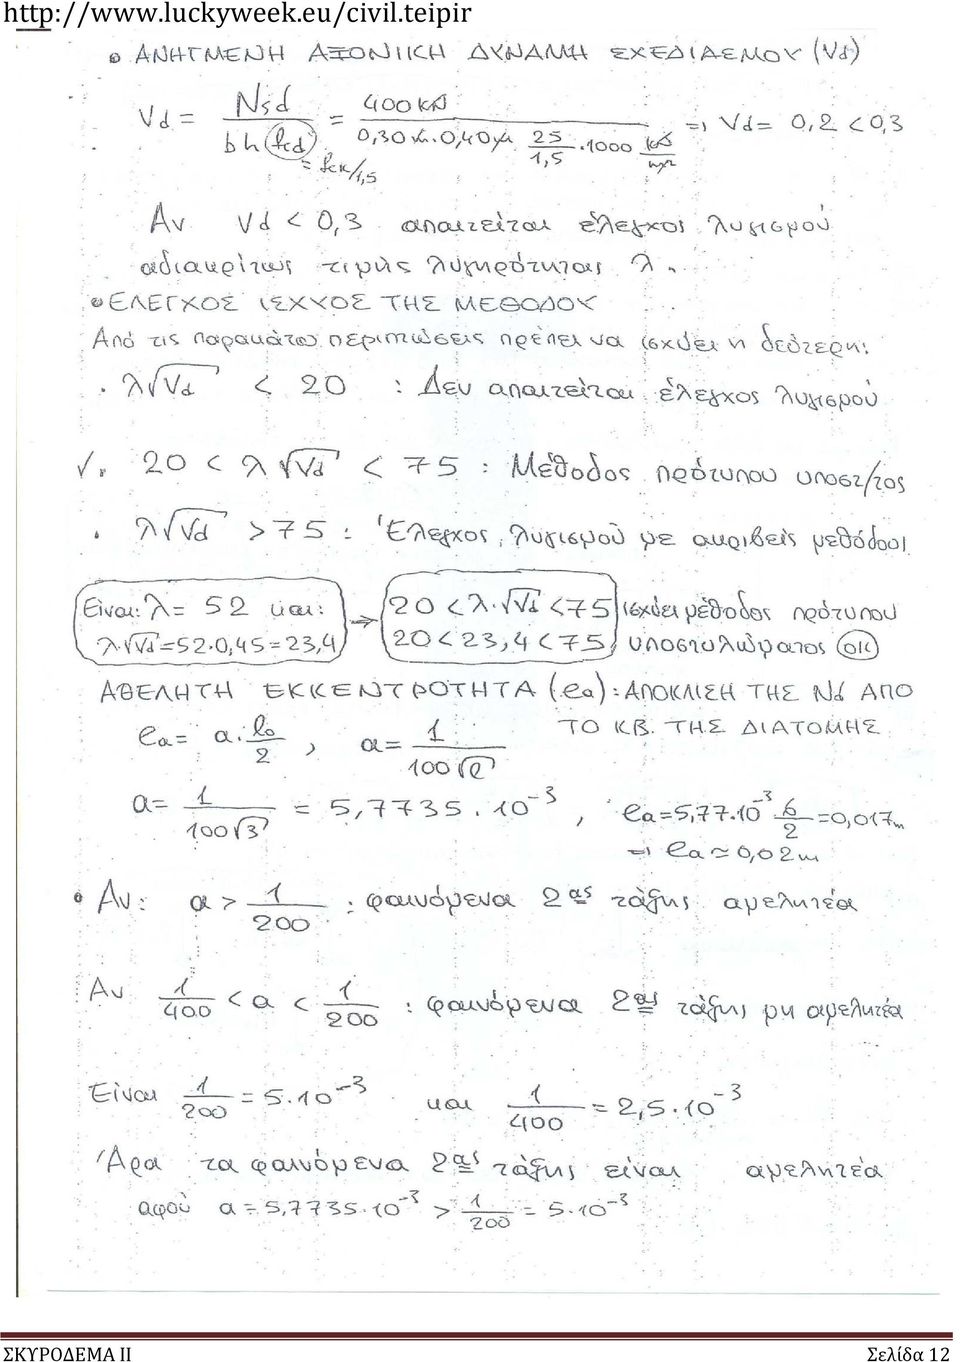 http://www.luckyweek.eu/civil.teipir
• ΑΝΗΓΜΕΝΗ ΑΞΟΝΙΚΗ ΔΥΝΑΜΗ ΣΧΕΔΙΑΣΜΟΥ (Vd)
Vd = Nsd / b h (fcd) = 400 kN / 0,30 μ. 0,40 μ 25/1,5 . 1000 kN/μ² => Vd = 0,2 < 0,3
= fck/1,5
Αν Vd < 0,3 απαιτείται έλεγχος λυγισμού
αδιακρίτως τιμής λυγηρότητας λ.
• ΕΛΕΓΧΟΣ ΙΣΧΥΟΣ ΤΗΣ ΜΕΘΟΔΟΥ
Από τις παρακάτω περιπτώσεις πρέπει να ισχύει η δεύτερη:
. λ√Vd < 20 : Δεν απαιτείται έλεγχος λυγισμού
√. 20 < λ √Vd < 75 : Μέθοδος πρότυπου υποστ/τος
. λ√Vd > 75 : Έλεγχος λυγισμού με ακριβείς μεθόδους
Είναι: λ = 52 και: → 20 < λ.√Vd < 75 ισχύει μέθοδος πρότυπου
λ.√Vd = 52.0,45 = 23,4 20 < 23,4 < 75 υποστυλώματος OK
ΑΘΕΛΗΤΗ ΕΚΚΕΝΤΡΟΤΗΤΑ (ea): ΑΠΟΚΛΙΣΗ ΤΗΣ Nd ΑΠΟ
ΤΟ ΚΒ. ΤΗΣ ΔΙΑΤΟΜΗΣ
ea = α. lo/2 , α = 1/100√l
α = 1/100√3 = 5,7735 . 10⁻³ , ea = 5,77.10⁻³ 6/2 = 0,017m
=> ea ≃ 0,02m
• Αν: α > 1/200 : φαινόμενα 2ας τάξης αμελητέα
Αν 1/400 < α < 1/200 : φαινόμενα 2ας τάξης μη αμελητέα
Είναι 1/200 = 5.10⁻³ και 1/400 = 2,5.10⁻³
Άρα τα φαινόμενα 2ας τάξης είναι αμελητέα
αφού α = 5,7735.10⁻³ > 1/200 = 5.10⁻³
ΣΚΥΡΟΔΕΜΑ ΙΙ Σελίδα 12